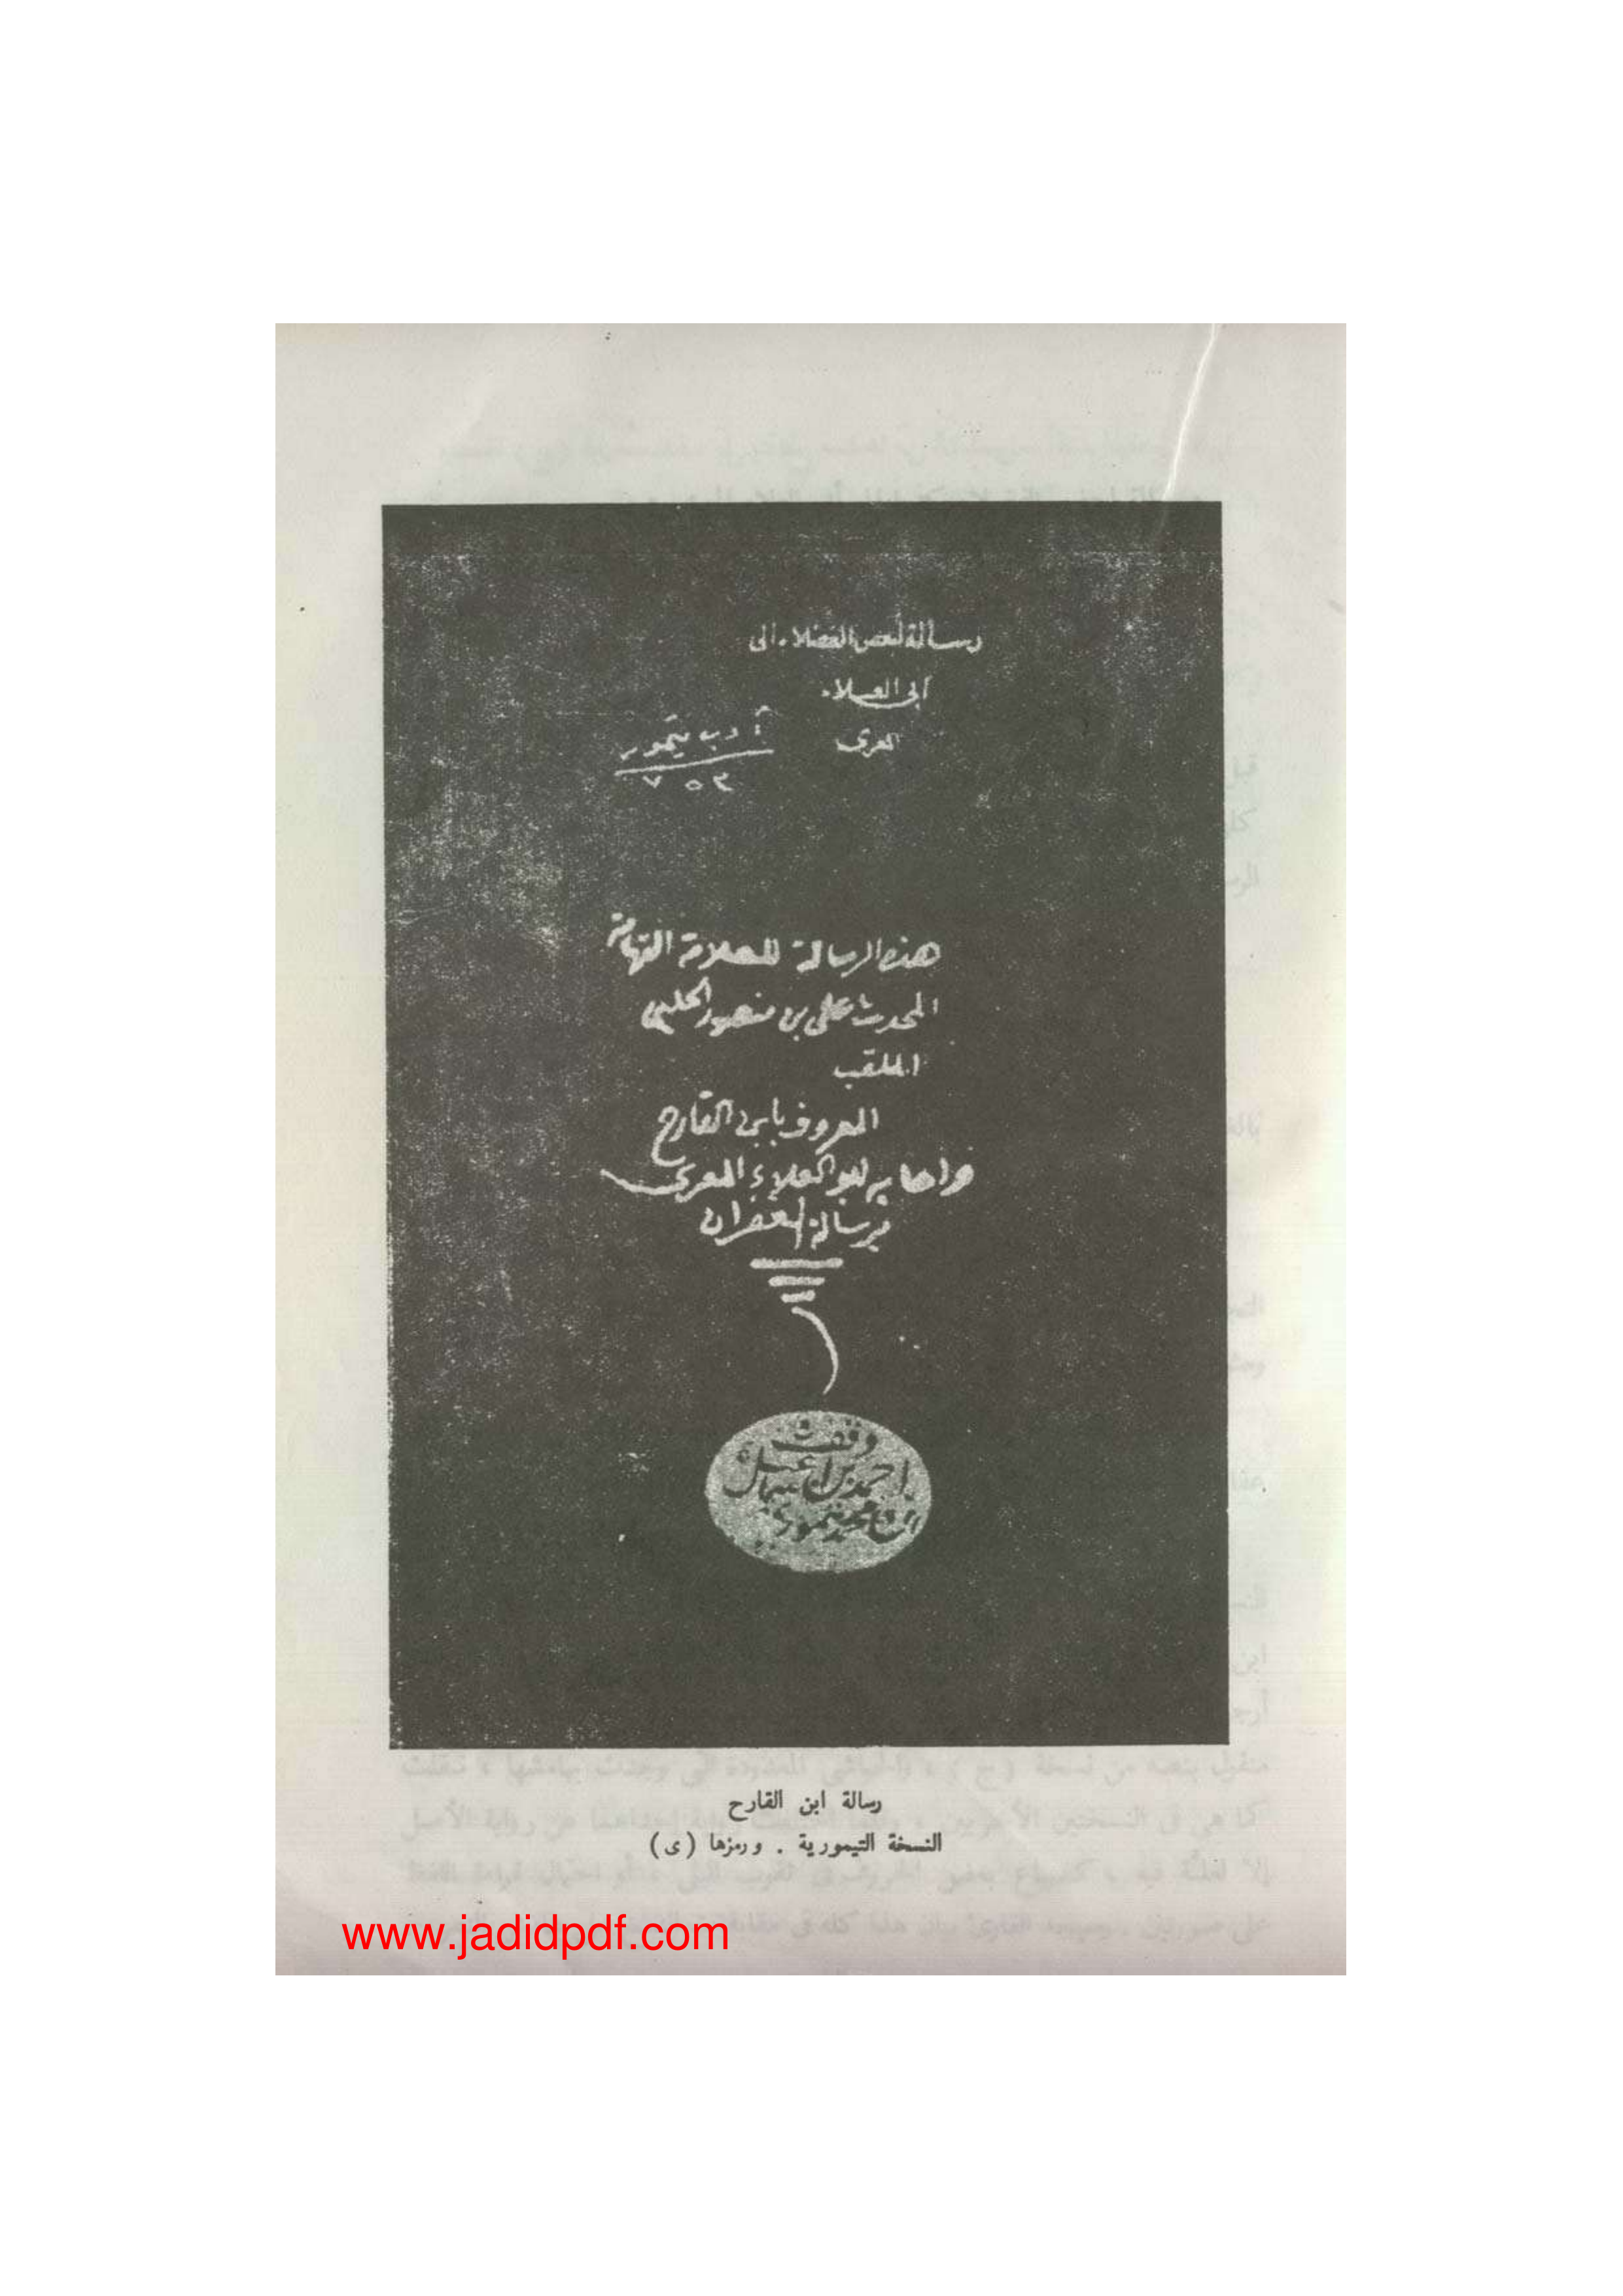 رسالة لبعض الفضلاء الى
ابى العلاء
المعرى
أدب تيمور
٧٥٢
هذه الرسالة للعلامة الفهامة
المحدث على بن منصور الحلبى
الملقب
المعروف بابن القارح
واجابه ابو العلاء المعرى
برسالة الغفران
وقف
احمد بن اسماعيل
ابن محمد تيمور
رسالة ابن القارح
النسخة التيمورية . ورمزها (ى)
www.jadidpdf.com